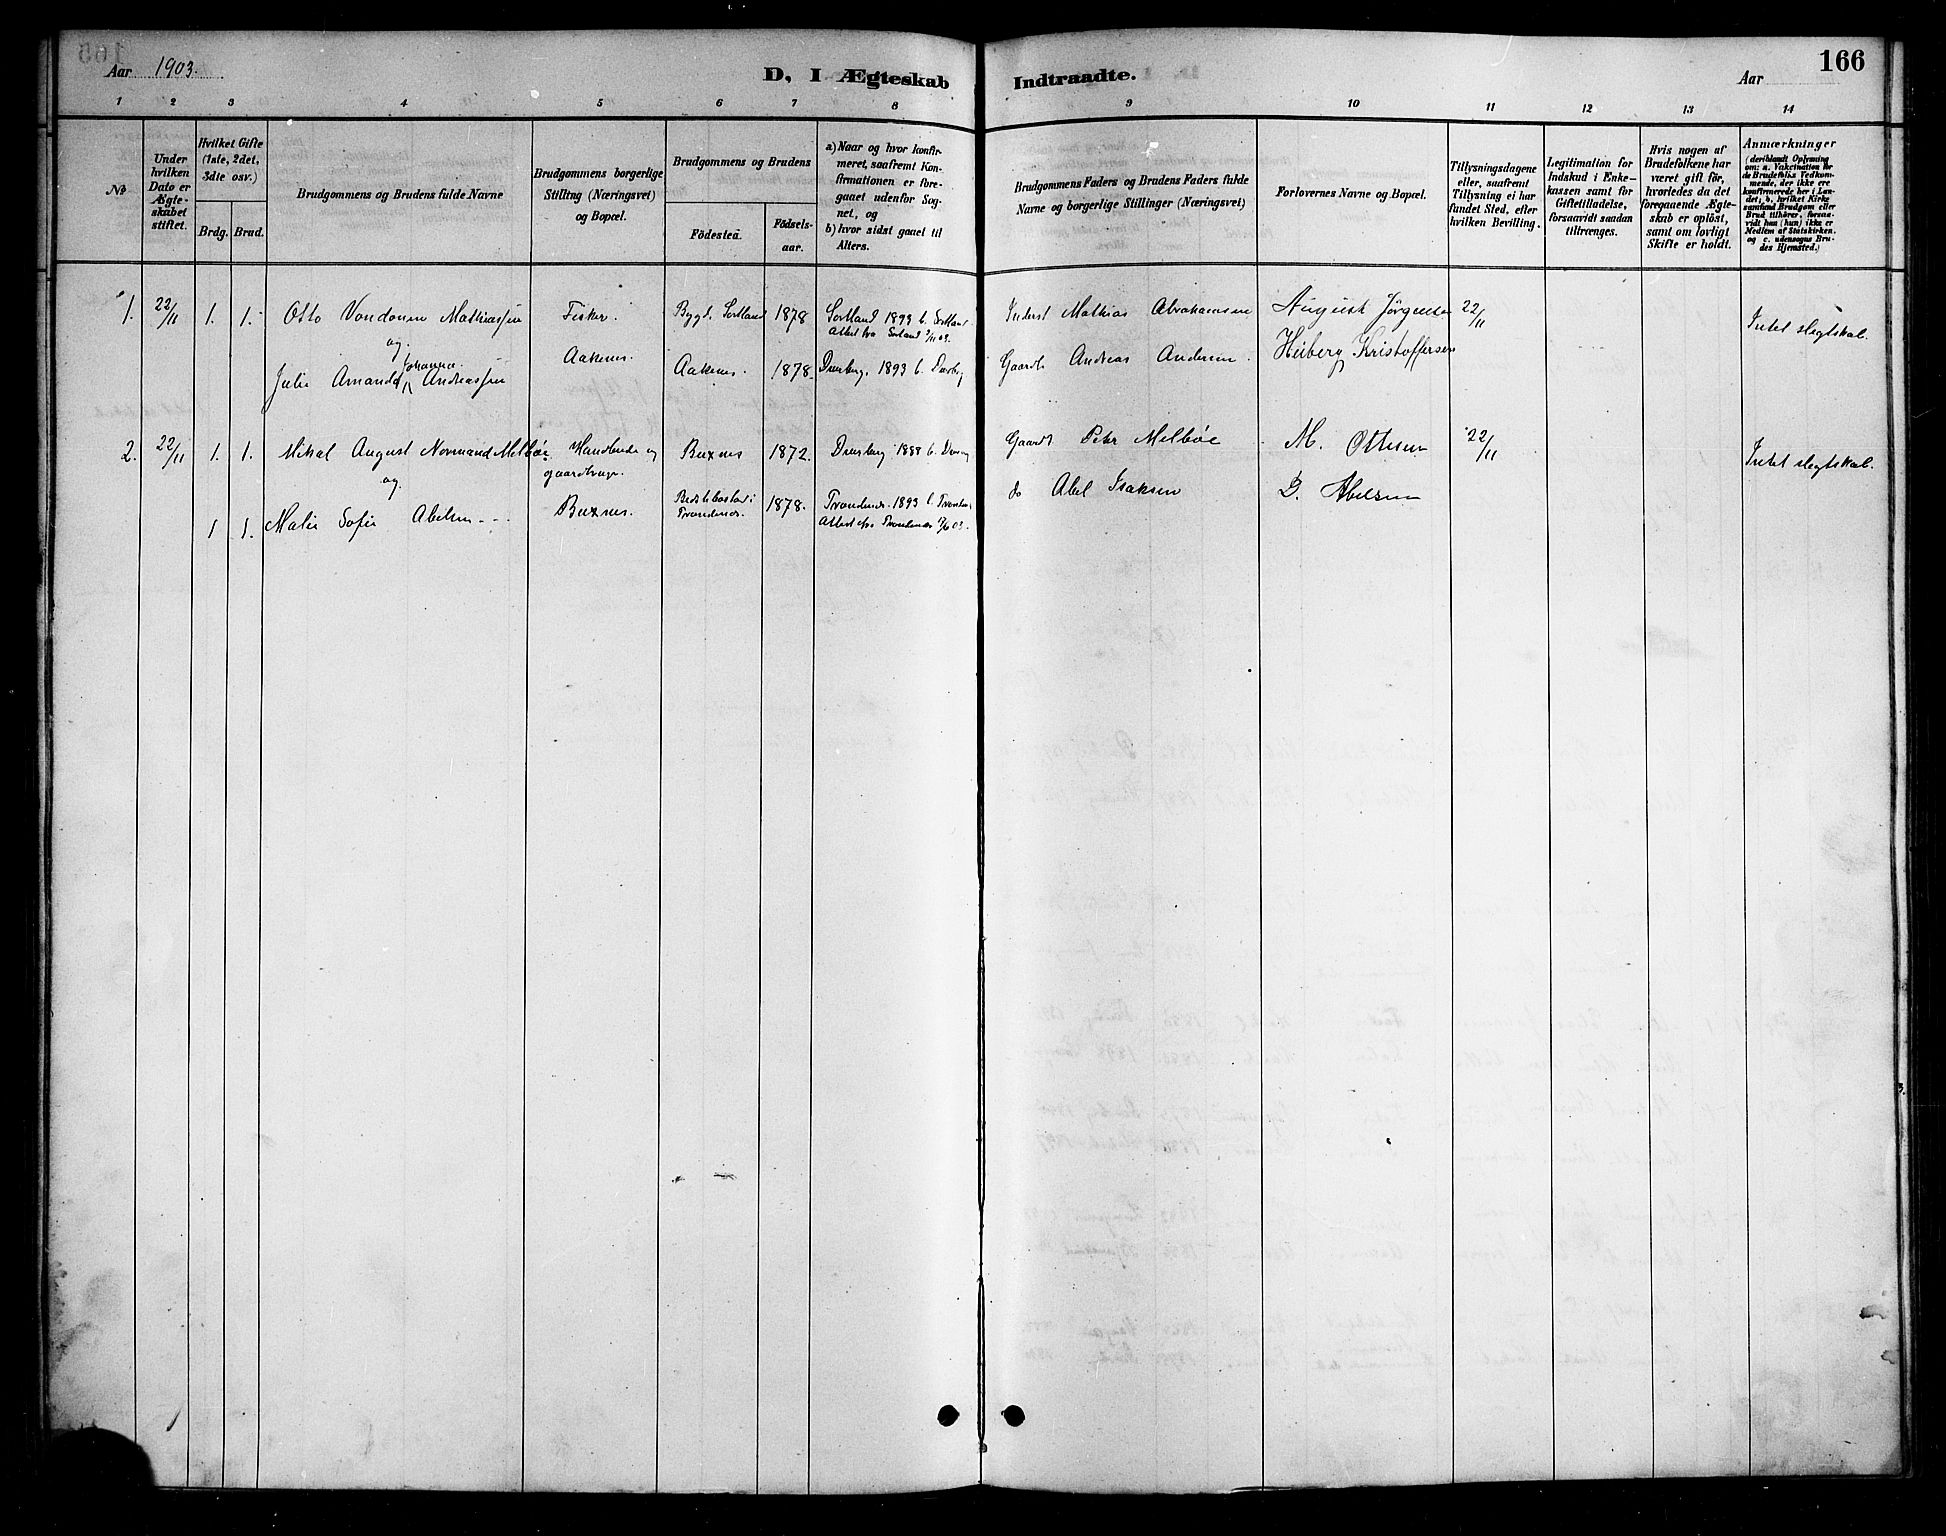 Aar 1903.
D, I Ægteskab Indtraadte.
Aar
166
1 2 3 4 5 6 7 8 9 10 11 12 13 14
No
Under hvilken Dato er Ægte-skabet stiftet.
Hvilket Gifte (1ste, 2det, 3die osv.)
Brdg. Brud.
Brudgommens og Brudens fulde Navne
Brudgommens borgerlige Stilling (Næringsvei) og Bopæl.
Brudgommens og Brudens
Födested. Födsels-aar.
a) Naar og hvor konfir-meret, saafremt Kon-firmationen er fore-gaaet udenför Sog-net, og
b) hvor sidst gaaet til Alters.
Brudgommens Faders og Brudens Faders fulde Navne og borgerlige Stillinger (Næringsvei)
Forlovernes Navne og Bopæl.
Tillysningsdagene eller, saafremt Tillysning ei har fundet Sted, efter hvilken Bevilling.
Legitimation for Indskud i Enke-kassen samt for Giftetilladelse, forsaavidt saadan tiltrænges.
Hvis nogen af Brudefolkene har været gift för, hvorledes da det foregaaende Ægte-skab er oplöst, samt om lovligt Skifte er holdt.
Anmærkninger
(deriblandt Oplysning om: a. Vakcination for de Brudefolks Vedkom-mende, der ikke ere konfirmerede her i Lan-det; b. hvilket Kirke samfund Brudgom eller Brud tilhörer, forsaa-vidt han (hun) ikke er Medlem af Statskirken. og c. udensogns Bru-des Hjemsted.)
1. 22/11 1. 1. Otto Mathiassen Fisker. Bygd. Sortland 1878 Sortland 1893 b. Sortland. Inderst Mathias Abrahamsen August Jörgensen 22/11 Intet slegtskab.
Attest fra Sortland
og
Johanna
Julie Amanda Andreassen Aaknes. Aaknes. 1878. Dverberg. 1893 b. Dverbg Gaardb Andreas Andersen. Heiberg Kristoffersen
2. 22/11 1. 1. Mikal August Normand Melböe Handlende og gaardbruger Buxnes 1872. Dverberg 1888 b. Gaardb Peter Melböe M. Ottesen 22/11 Intet slegtskab.
og
1 1. Malie Sofie Abelsen Buxnes. Trondenes. 1878. Trondenes. 1893 b. do Abel Isaksen Abelsen
Attest fra Trondenes